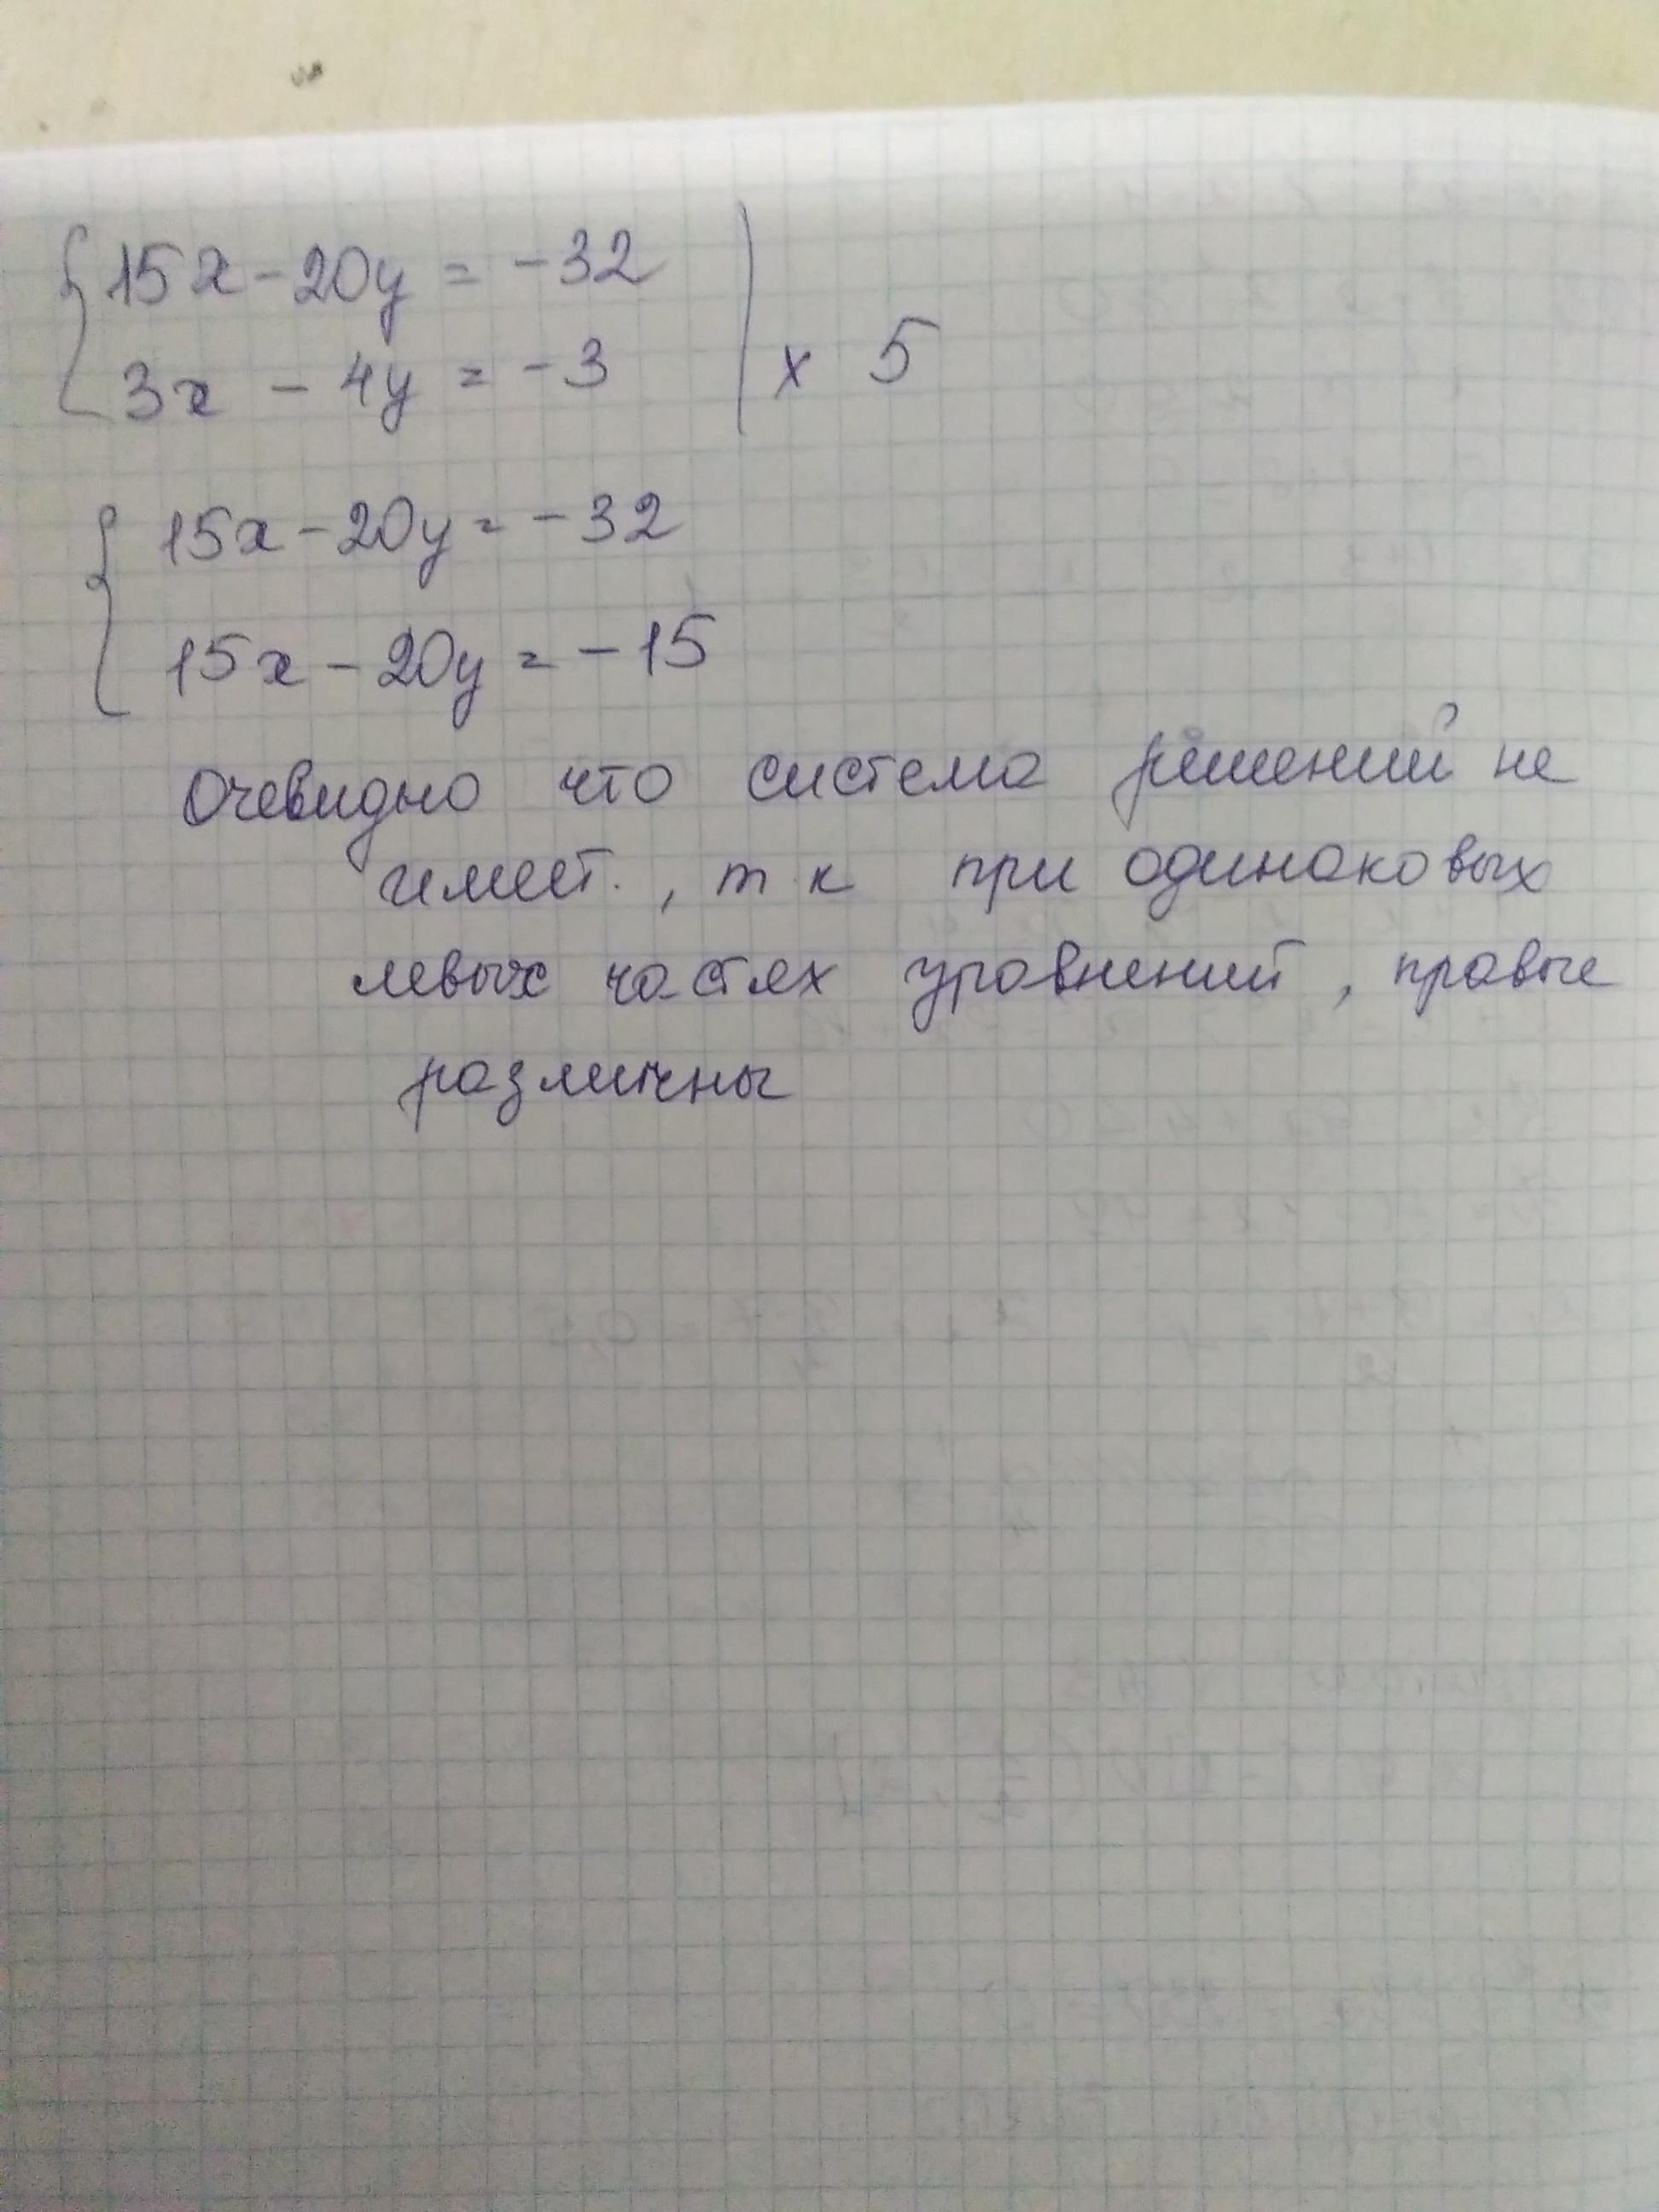 15x - 20y = -32
3x - 4y = -3 | x 5
15x - 20y = -32
15x - 20y = -15
Очевидно что система решений не
имеет., т к при одинаковых
левых частях уравнений, правые
различны